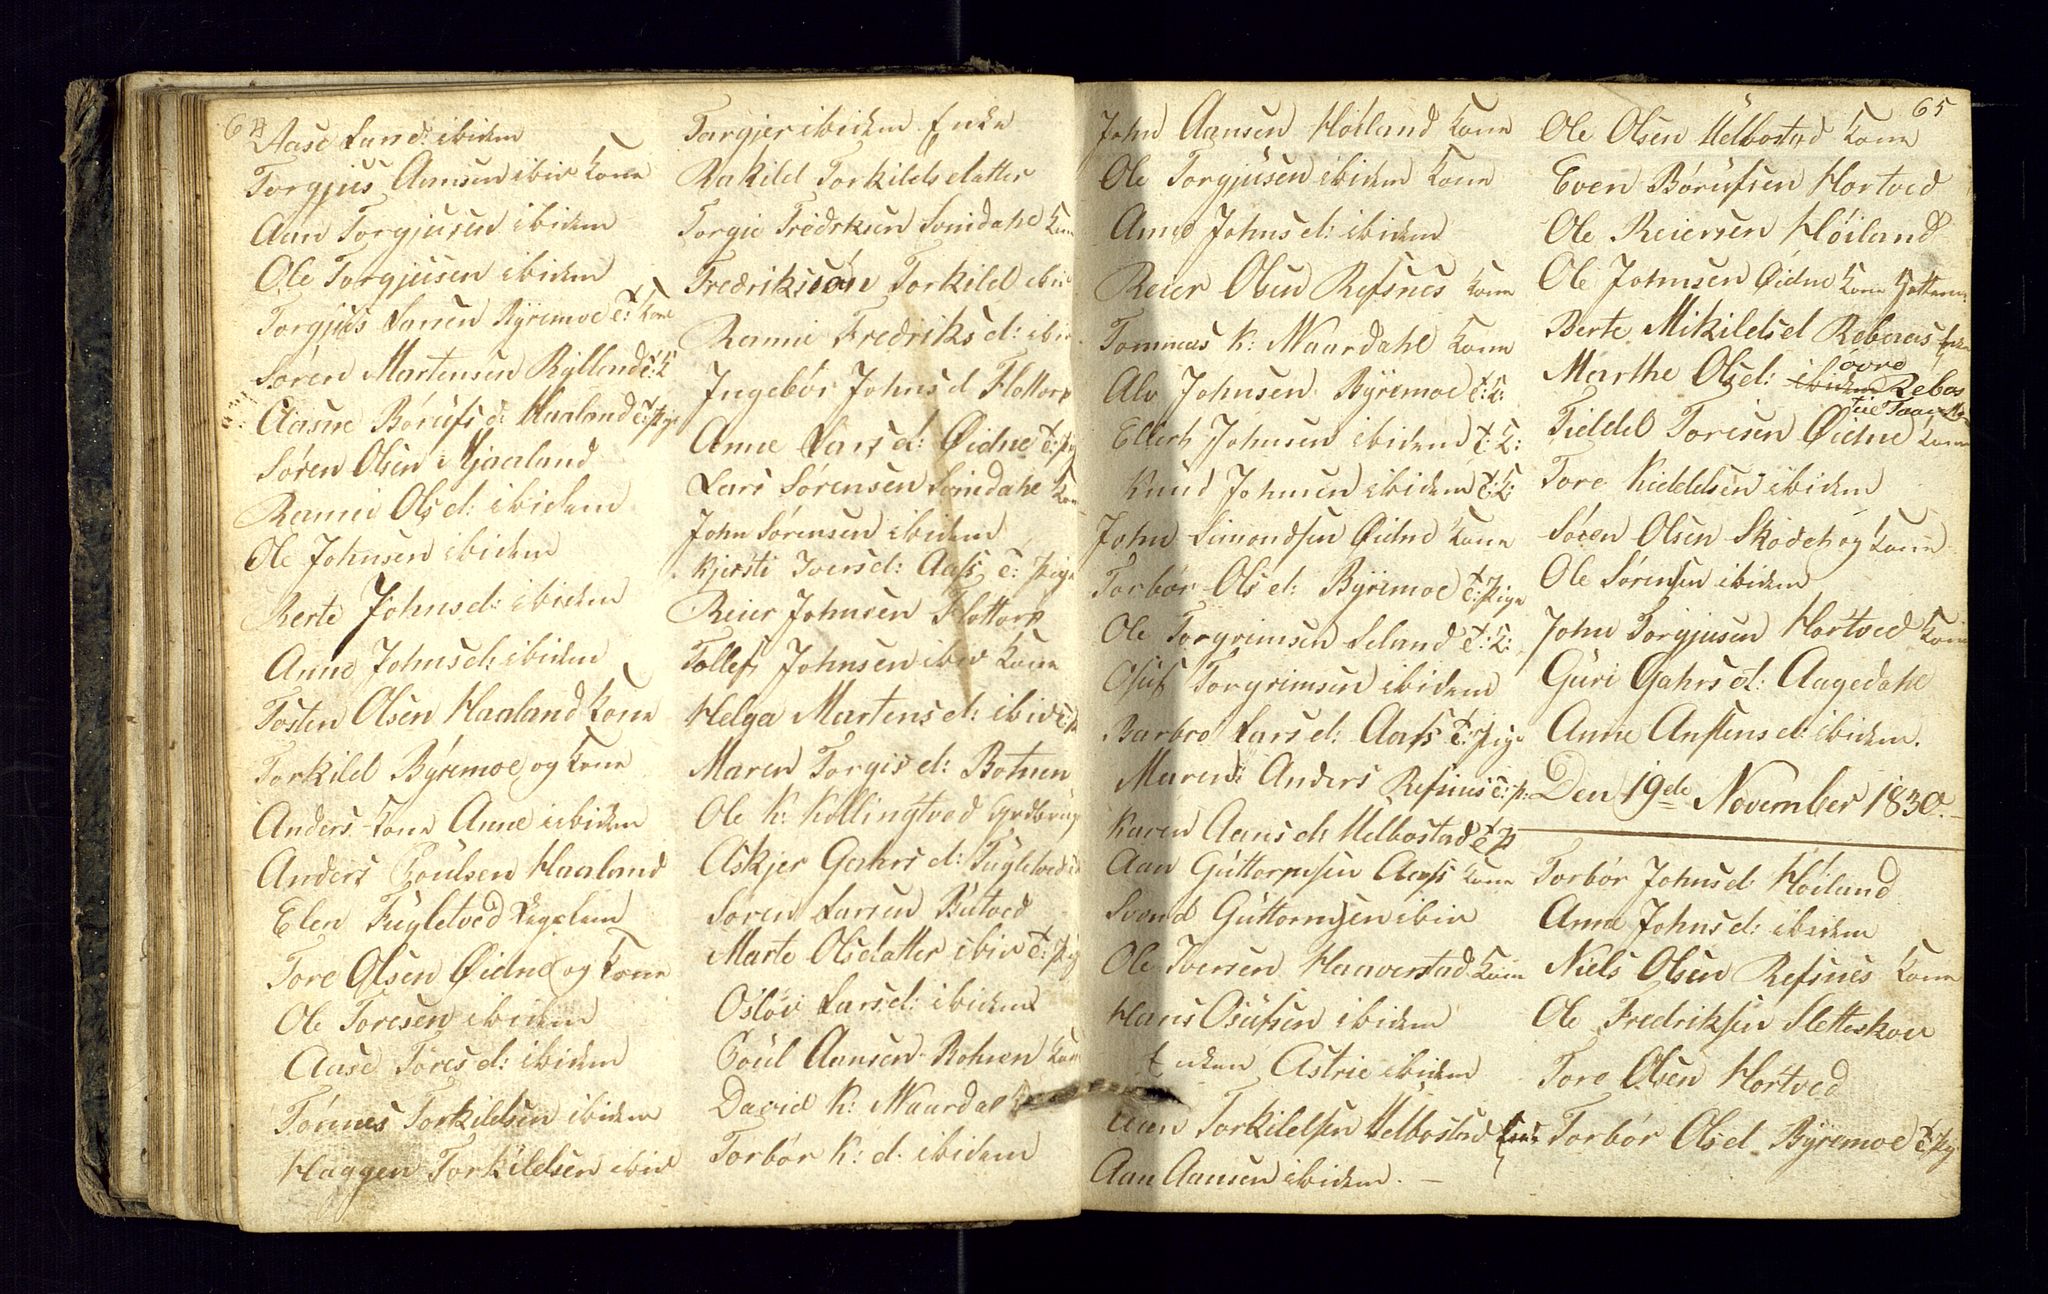 64
Aase Lars d: ibidem
Torgjus Aansen ibid Kone
Aan Torgjusen ibidem
Ole Torgjusen ibidem
Torgjus Larsen Byremoe t: Kone
Søren Martensen Bylland t: K
Aasne Børufs d: Haaland t: Pige
Søren Olsen Mjaaland
Rannei Ols d: ibidem
Ole Johnsen ibidem
Berte Johns d: ibidem
Anne Johns d: ibidem
Tosten Olsen Haaland Kone
Torkild Byremoe og Kone
Anders Kone Anne ibidem
Anders Poulsen Haaland
Elen Fugletved
Tore Olsen Øidne og Kone
Ole Toresen ibidem
Aase Tores d: ibidem
Tønnes Torkildsen ibidem
Haagen Torkildsen ibid
Targjer ibidem Enke
Rakild Torkilds datter
Torgie Fredriksen Svindahl Kone
Fredriksen Torkild ibid
Rannei Fredriks d: ibid
Ingebor Johns d Flottorp
Anne Lars d: Øidne t: Pig
Lars Sørensen Svindahl Kone
John Sørensen ibidem
Kjersti Ivers d: Aass t: Pige
Reier Johnsen Flottorp
Tollef Johnsen ibid Kone
Helga Martens d: ibid t: p
Maren Torgis d: Botnen
Ole K: Kollingtved
Askjer Gahrs d: Fugletved
Søren Larsen Butved
Marte Olsdatter ibid t: Pig
Osløv Lars d: ibidem
Poul Aansen Rohnen Kone
David K: Waardal
Torbør K: d. ibidem
65
John Aansen Høiland Kone
Ole Torgjusen ibidem Kone
Anne Johns d: ibidem
Reier Olsen Refsnes Kone
Tommas K: Waardahl Kone
Alv Johnsen Byremoe t: K:
Ellert Johnsen ibidem t: K:
Knud Johnsen ibidem t: K:
John Simondsen Øidne Kone
Torbør Ols d: Byremoe t: Pige
Ole Torgrimsen Seland t: K:
Osuf Torgrimsen ibidem
Barbro Lars d: Aass t: Pige
Maren Anders Refsnes t: p:
Karen Aans d: Helbostad t: P
Aan Guttormsen Aass Kone
Svend Guttormsen ibid
Ole Iversen Haaverstad Kone
Hans Osufsen ibidem
Enken Astrie ibidem
Aan Torkildsen Helbostad Kone
Aan Aansen ibidem. —
Ole Olsen Helbostad Kone
Even Børufsen Hortved
Ole Reiersen Høiland
Ole Johnsen Øidne Kone
Berte Mikilds d Rebaas Enke
Marthe Ols d: ibidem øvre Rebos
Fieldel Toresen Øidne Kone
Tore Kieldelsen ibidem
Søren Olsen Skodeh og Kone
Ole Sørensen ibidem
John Torgjusen Hortved Kone
Guri Gahrs d: Aagedahl
Anne Anstens d: ibidem.
Den 19de November 1830.
Torbør Johns d: Høiland
Anne Johns d: ibidem
Niels Olsen Refsnes Kone
Ole Fredriksen Sletteskou
Tore Olsen Hortved
Torbør Ols d Byremoe t: Pig